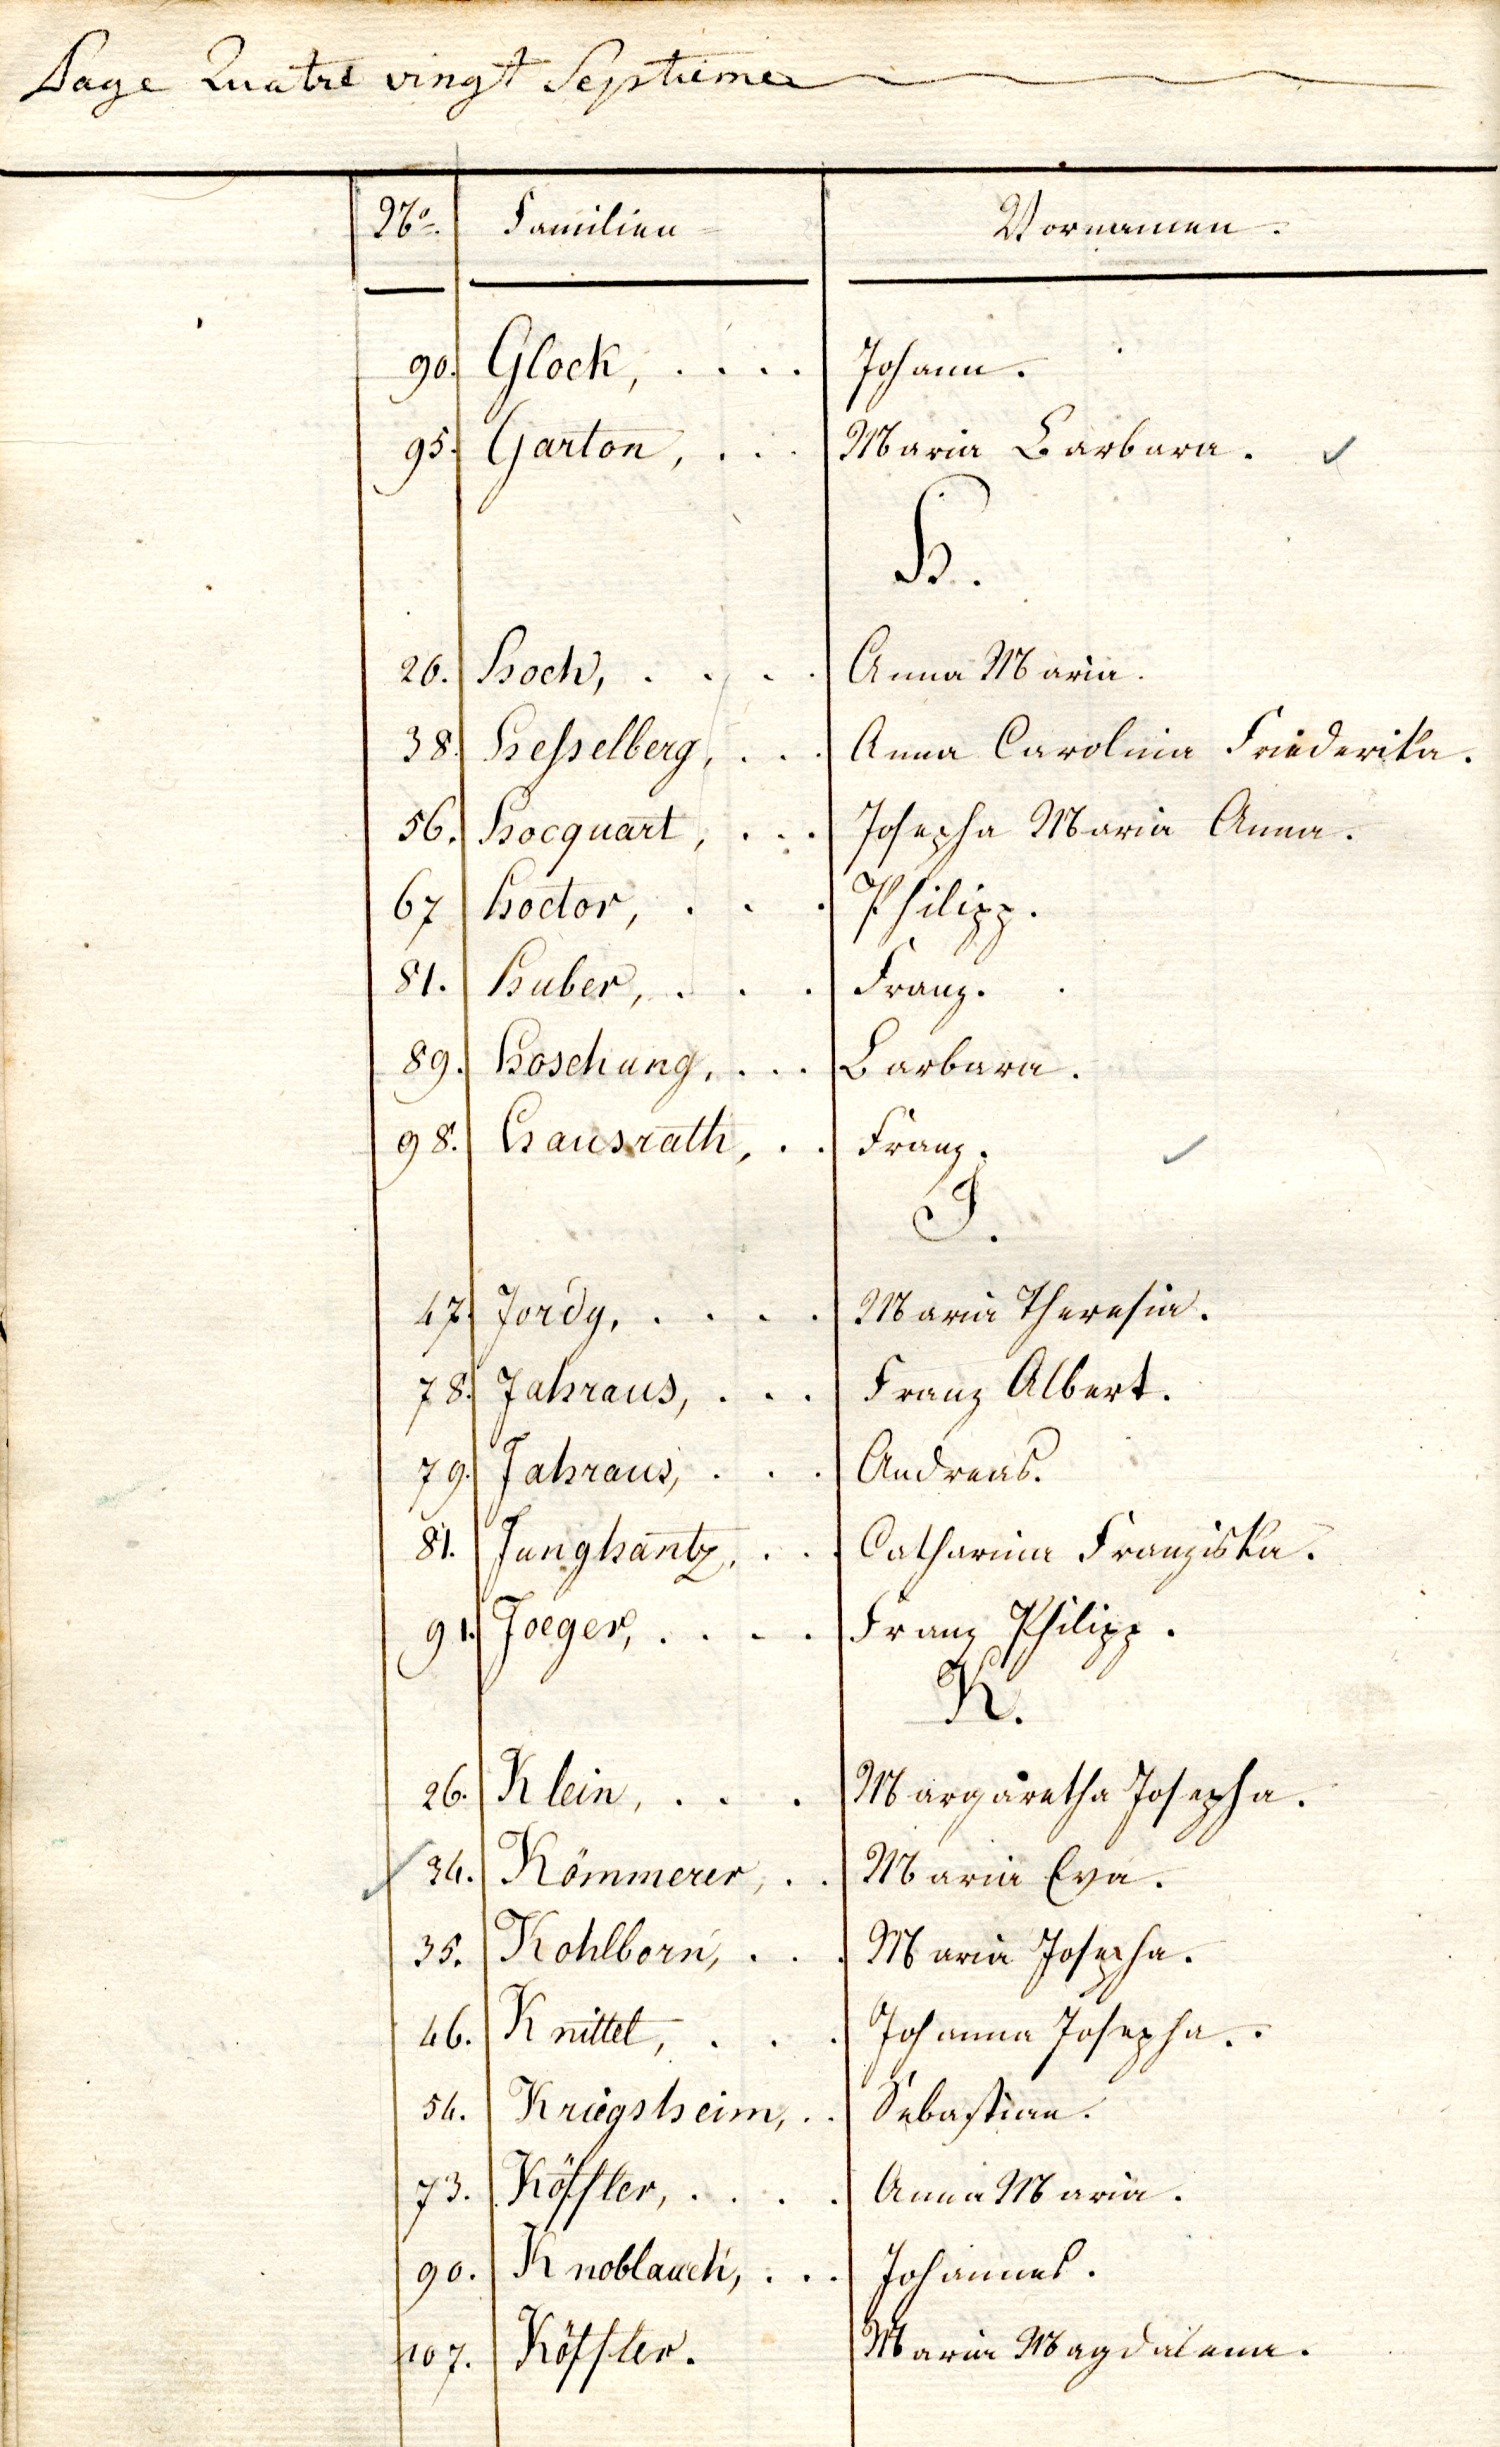 Page Quatre vingt Septieme
No. Familien Vornamen.
90. Glock, . . . . Johann.
95. Garton, . . . Maria Barbara. ✓
H.
26. Hoch, . . . . Anna Maria.
38. Hesselberg, . . . Anna Carolina Friederika.
56. Hocquart, . . . Josepha Maria Anna.
67 Hoctor, . . . Philipp.
81. Huber, . . . Franz.
89. Hoschung, . . . Barbara.
98. Hausrath, . . Franz. ✓
J.
47. Jordy, . . . . Maria Theresia.
78. Jahraus, . . . Franz Albert.
79. Jahraus, . . . Andreas.
81. Junghantz, . . . Catharina Franziska.
91. Joeger, . . . . Franz Philipp.
K.
26. Klein, . . . Margaretha Josepha.
✓ 34. Kömmerer, . . Maria Eva.
35. Kohlborn, . . . Maria Josepha.
46. Knittel, . . . Johanna Josepha.
54. Kriegsheim, . . Sebastian.
73. Köffler, . . . . Anna Maria.
90. Knoblauch, . . . Johannes.
107. Köffler. Maria Magdalena.